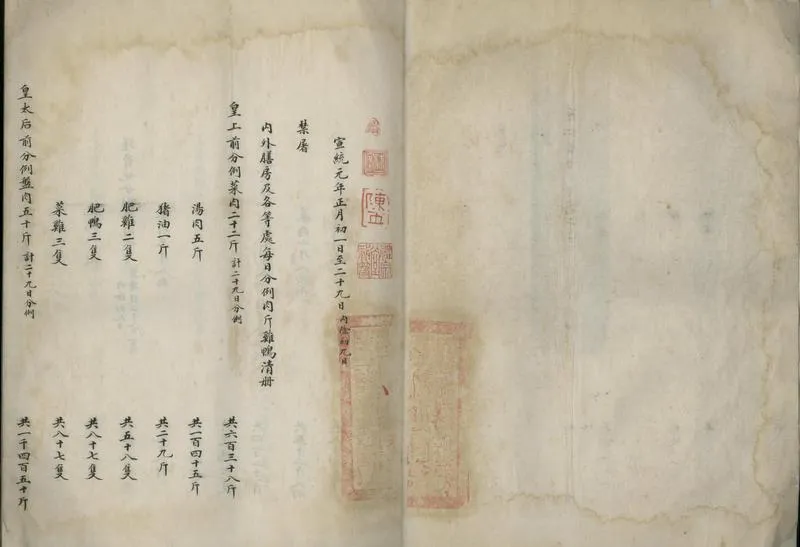 宣統元年正月初一日至二十九日 內除初九日
禁屠
內外膳房及各等處每日分例肉斤雞鴨清册
皇上前分例菜肉二十二斤 計二十九日分例 共六百三十八斤
湯肉五斤 共一百四十五斤
猪油一斤 共二十九斤
肥雞二隻 共五十八隻
肥鴨三隻 共八十七隻
菜雞三隻 共八十七隻
皇太后前分例盤肉五十斤 計二十九日分例 共一千四百五十斤